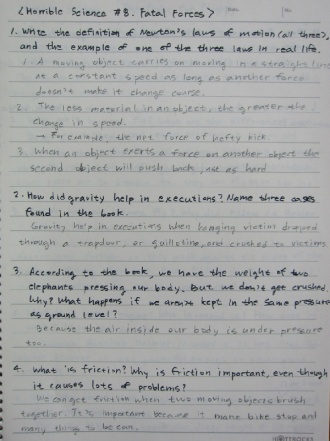 <Horrible Science #8. Fatal Forces>
1. Write the definition of Newton's laws of motion (all three),
and the example of one of the three laws in real life.
1. A moving object carries on moving in a straight line
at a constant speed as long as another force
doesn't make it change course.
2. The less material in an object, the greater the
change in speed.
→ For example, the net force of hefty kick
3. When an object exerts a force on another object the
second object will push back just as hard
2. How did gravity help in executions? Name three cases
found in the book.
Gravity help in executions when hanging victim dropped
through a trapdoor, or guillotine, and crushed to victims
3. According to the book, we have the weight of two
elephants pressing our body. But we don't get crushed.
Why? What happens if we aren't kept in the same pressure
as ground level?
Because the air inside our body is under pressure
too.
4. What is friction? Why is friction important, even though
it causes lots of problems?
We can get friction when two moving objects brush
together. It is important because it make bike stop and
many things to be